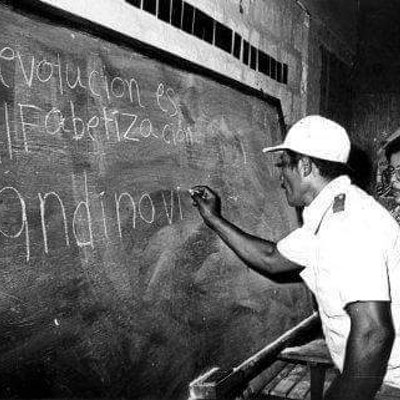 evolucion es
lfabetización
andinovi